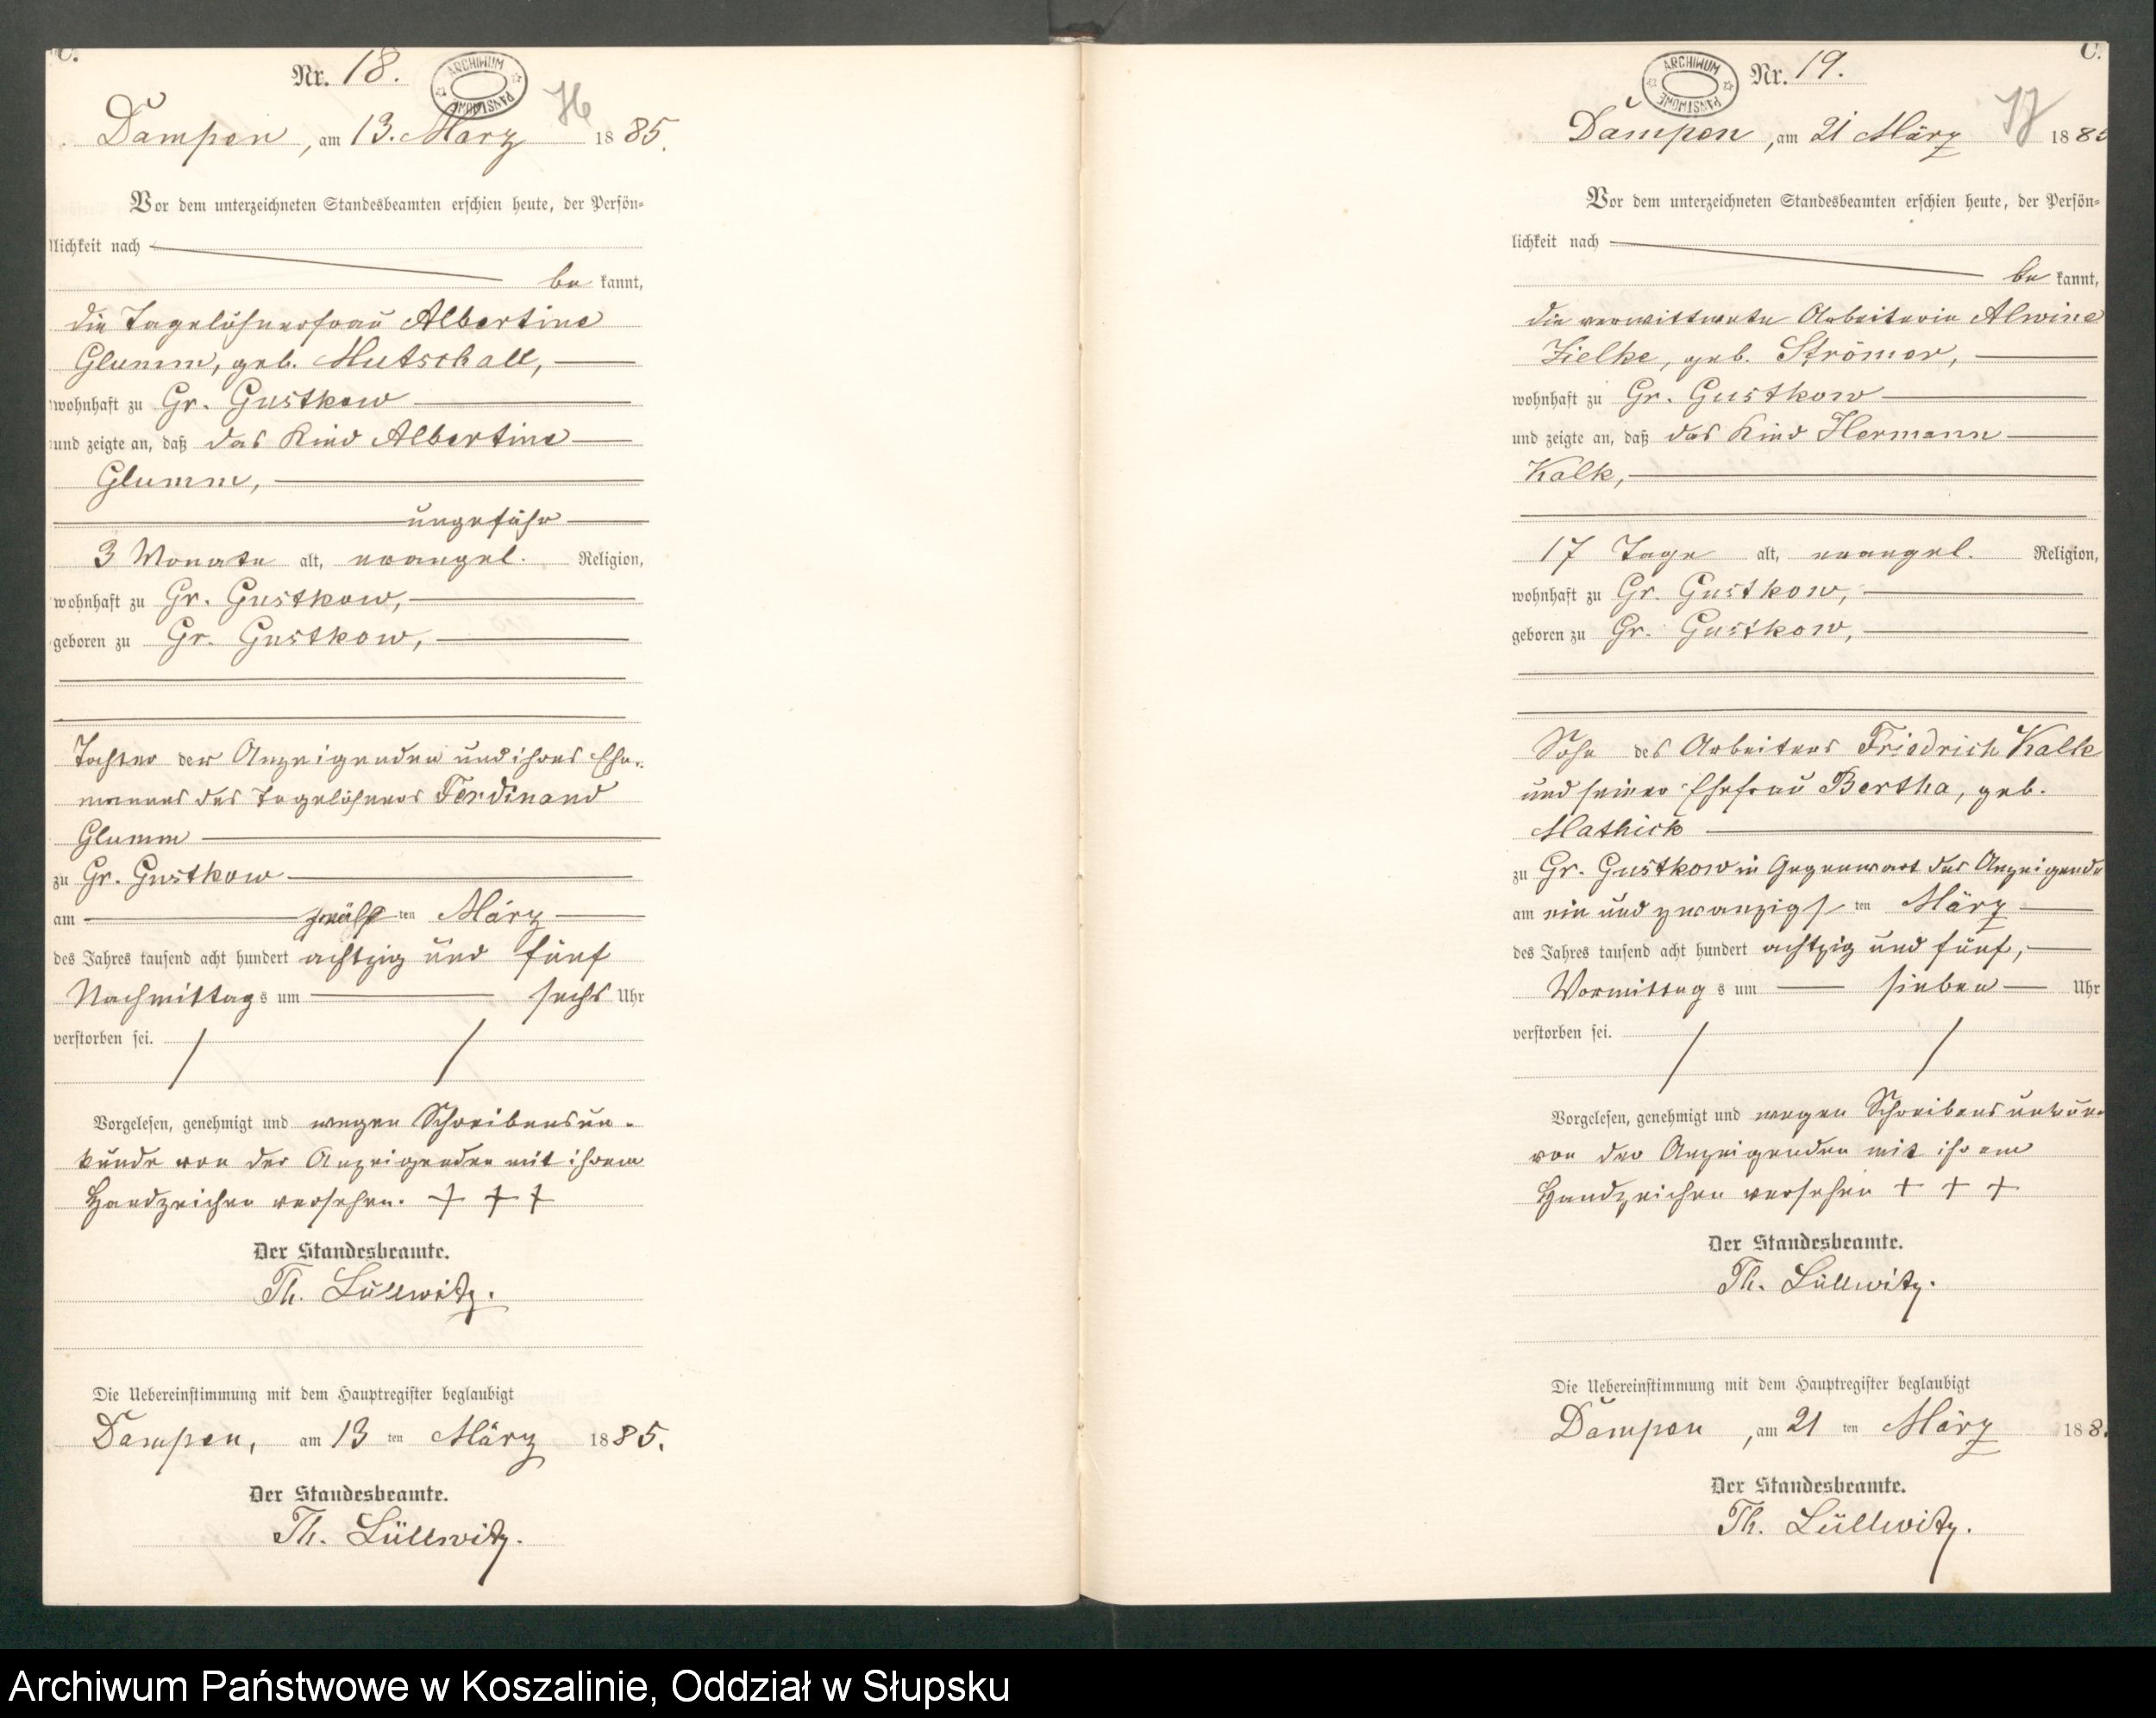 C.
Nr. 18.
ARCHIWUM PAŃSTWOWE
Dampen, am 13. März 1885.
Vor dem unterzeichneten Standesbeamten erschien heute, der Persön-
lichkeit nach
be kannt,
die Tagelöhnerfrau Albertine
Glumm, geb. Mutschall,
wohnhaft zu Gr. Gustkow
und zeigte an, daß das Kind Albertine
Glumm,
ungefähr
3 Monate alt, evangel. Religion,
wohnhaft zu Gr. Gustkow,
geboren zu Gr. Gustkow,
Tochter der Anzeigenden und ihres Ehe-
mannes des Tagelöhners Ferdinand
Glumm
zu Gr. Gustkow
am zwölf ten März
des Jahres tausend acht hundert achtzig und fünf
Nachmittag s um sechs Uhr
verstorben sei.
Vorgelesen, genehmigt und wegen Schreibensun-
kunde von der Anzeigenden mit ihrem
Handzeichen versehen. + + +
Der Standesbeamte.
Th. Lüllwitz.
Die Uebereinstimmung mit dem Hauptregister beglaubigt
Dampen, am 13 ten März 1885.
Der Standesbeamte.
Th. Lüllwitz.
C.
Nr. 19.
ARCHIWUM PAŃSTWOWE
Dampen, am 21 März 188
Vor dem unterzeichneten Standesbeamten erschien heute, der Persön-
lichkeit nach
be kannt,
die verwittwete Arbeiterin Alwine
Zielke, geb. Strömer,
wohnhaft zu Gr. Gustkow
und zeigte an, daß das Kind Hermann
Kalk,
17 Tage alt, evangel. Religion,
wohnhaft zu Gr. Gustkow,
geboren zu Gr. Gustkow,
Sohn des Arbeiters Friedrich Kalk
und seiner Ehefrau Bertha, geb.
Mathick
zu Gr. Gustkow in Gegenwart der Anzeigende
am ein und zwanzigs ten März
des Jahres tausend acht hundert achtzig und fünf,
Vormittag s um sieben Uhr
verstorben sei.
Vorgelesen, genehmigt und wegen Schreibensunkun
von der Anzeigenden mit ihrem
Handzeichen versehen + + +
Der Standesbeamte.
Th. Lüllwitz.
Die Uebereinstimmung mit dem Hauptregister beglaubigt
Dampen, am 21 ten März 188
Der Standesbeamte.
Th. Lüllwitz.
Archiwum Państwowe w Koszalinie, Oddział w Słupsku